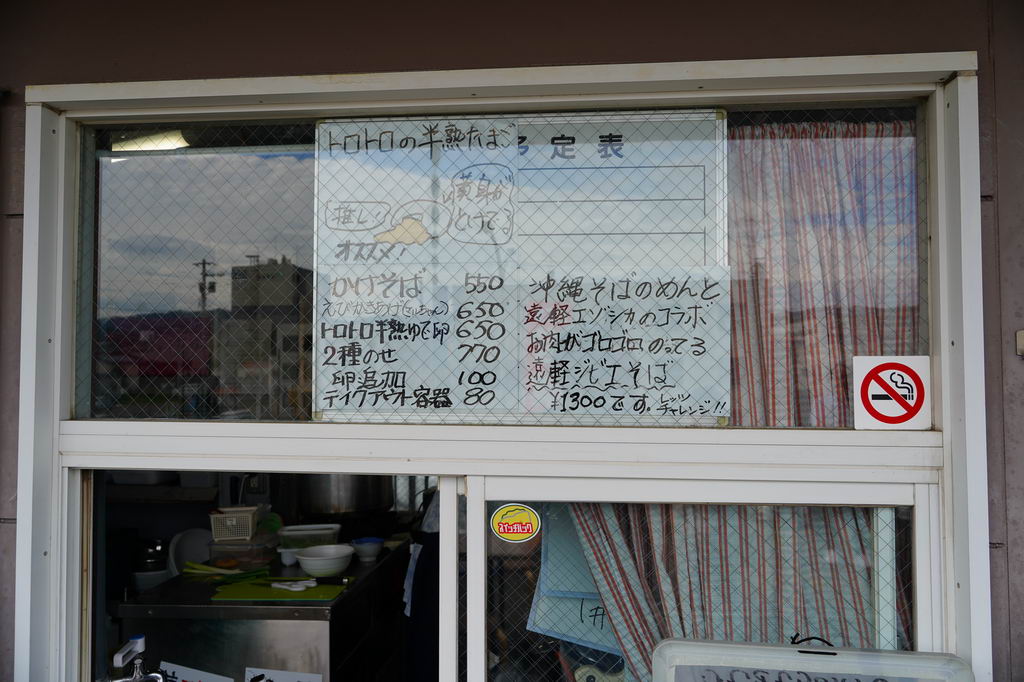 トロトロの半熟たまご
予定表
黄身が
とけてる
推し!
オススメ!
かけそば 550
えびかきあげ 650
トロトロ半熟ゆで卵 650
2種のせ 770
卵追加 100
テイクアウト容器 80
沖縄そばのめんと
遠軽エゾシカのコラボ
お肉がゴロゴロのってる
遠軽ジビエそば
¥1300です。レッツ
チャレンジ!!